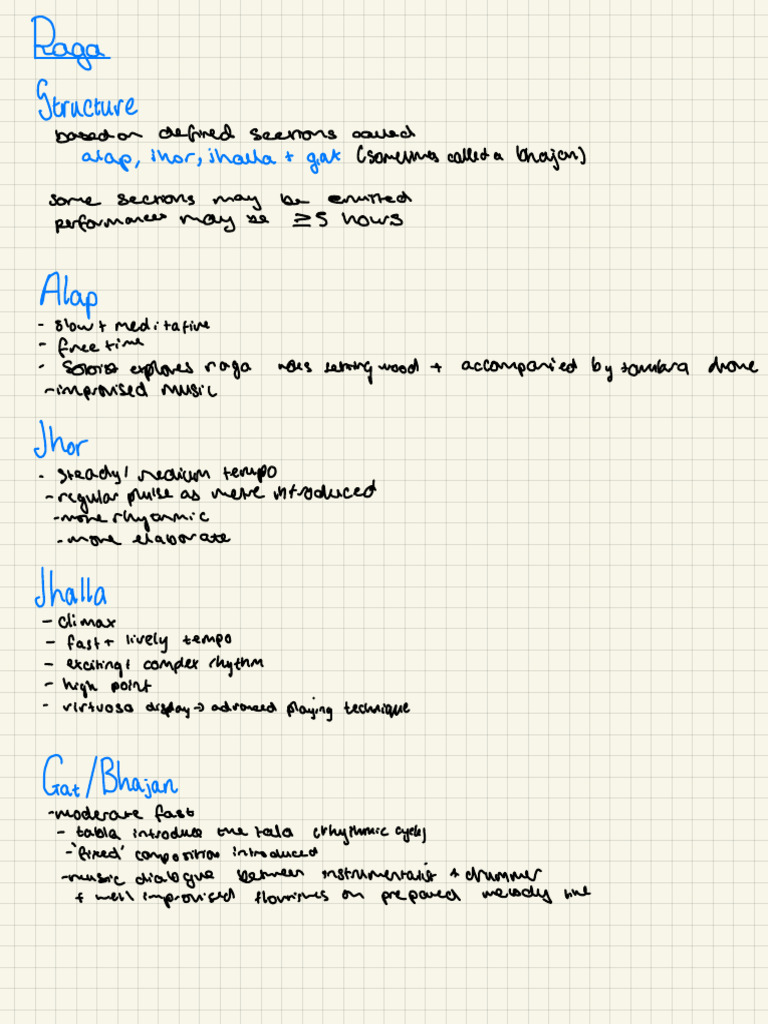 Raga
Structure
based on defined sections called
alap, jhor, jhalla + gat (sometimes called a bhajan)
some sections may be emitted
performances may be ≥5 hours
Alap
- slow + meditative
- free time
- Soloist explores raga notes setting mood + accompanied by tambura drone
- improvised music
Jhor
- steady / medium tempo
- regular pulse as metre introduced
- more rhythmic
- more elaborate
Jhalla
- climax
- fast + lively tempo
- exciting + complex rhythm
- high point
- virtuoso display → advanced playing technique
Gat/Bhajan
- moderate fast
- tabla introduce the tala (rhythmic cycle)
- 'fixed' composition introduced
- music dialogue between instrumentalist + drummer
+ improvised flourishes on prepared melody line